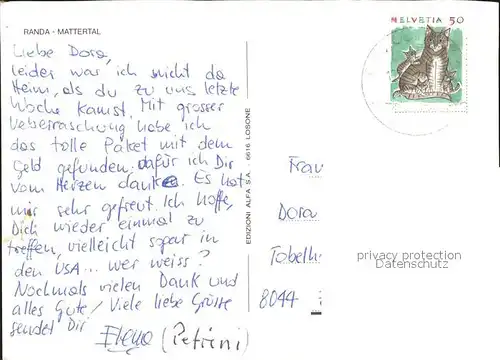 RANDA - MATTERTAL
Liebe Dora,
leider war ich nicht da
Heim, als du zu uns letzte
Woche kamst. Mit grosser
Ueberraschung habe ich
das tolle Paket mit dem
Geld gefunden. dafür ich Dir
vom Herzen danke. Es hat
mir sehr gefreut. Ich hoffe,
Dich wieder einmal zu
treffen, vielleicht sogar in
den USA... wer weiss?
Nochmals vielen Dank und
alles Gute! Viele liebe Grüsse
sendet Dir
(Petrini)
EDIZIONI ALFA S.A. - 6616 LOSONE
HELVETIA 50
Frau
Dora
Tobelh
8044
privacy protection
Datenschutz